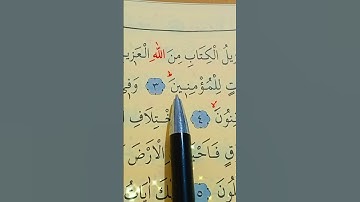 زِيلُ الْكِتَابِ مِنَ اللّٰهِ الْعَزِيـ
تٍ لِلْمُؤْمِنِينَ ﴿٣﴾ وَفِي
ـنُونَ ﴿٤﴾ ـخْتِلَافِ ا
قٍ فَاَحْيَـ الْاَرْضَ
ـلُونَ ﴿٥﴾ ـكَ اٰيَاتُ